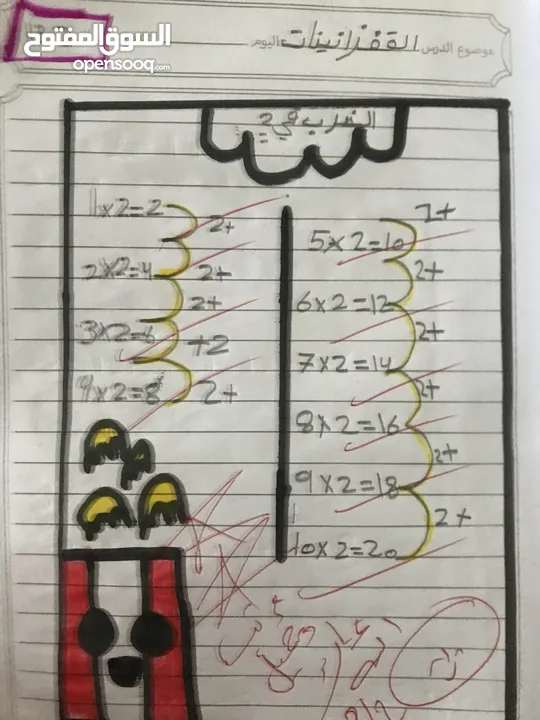 السوق المفتوح
opensooq.com
موضوع الدرس القفزانينات اليوم
الضرب في 2
1x2=2
2+
2x2=4
2+
2+
3x2=6
+2
4x2=8
2+
2+
5x2=10
2+
6x2=12
2+
7x2=14
2+
8x2=16
2+
9x2=18
2+
10x2=20